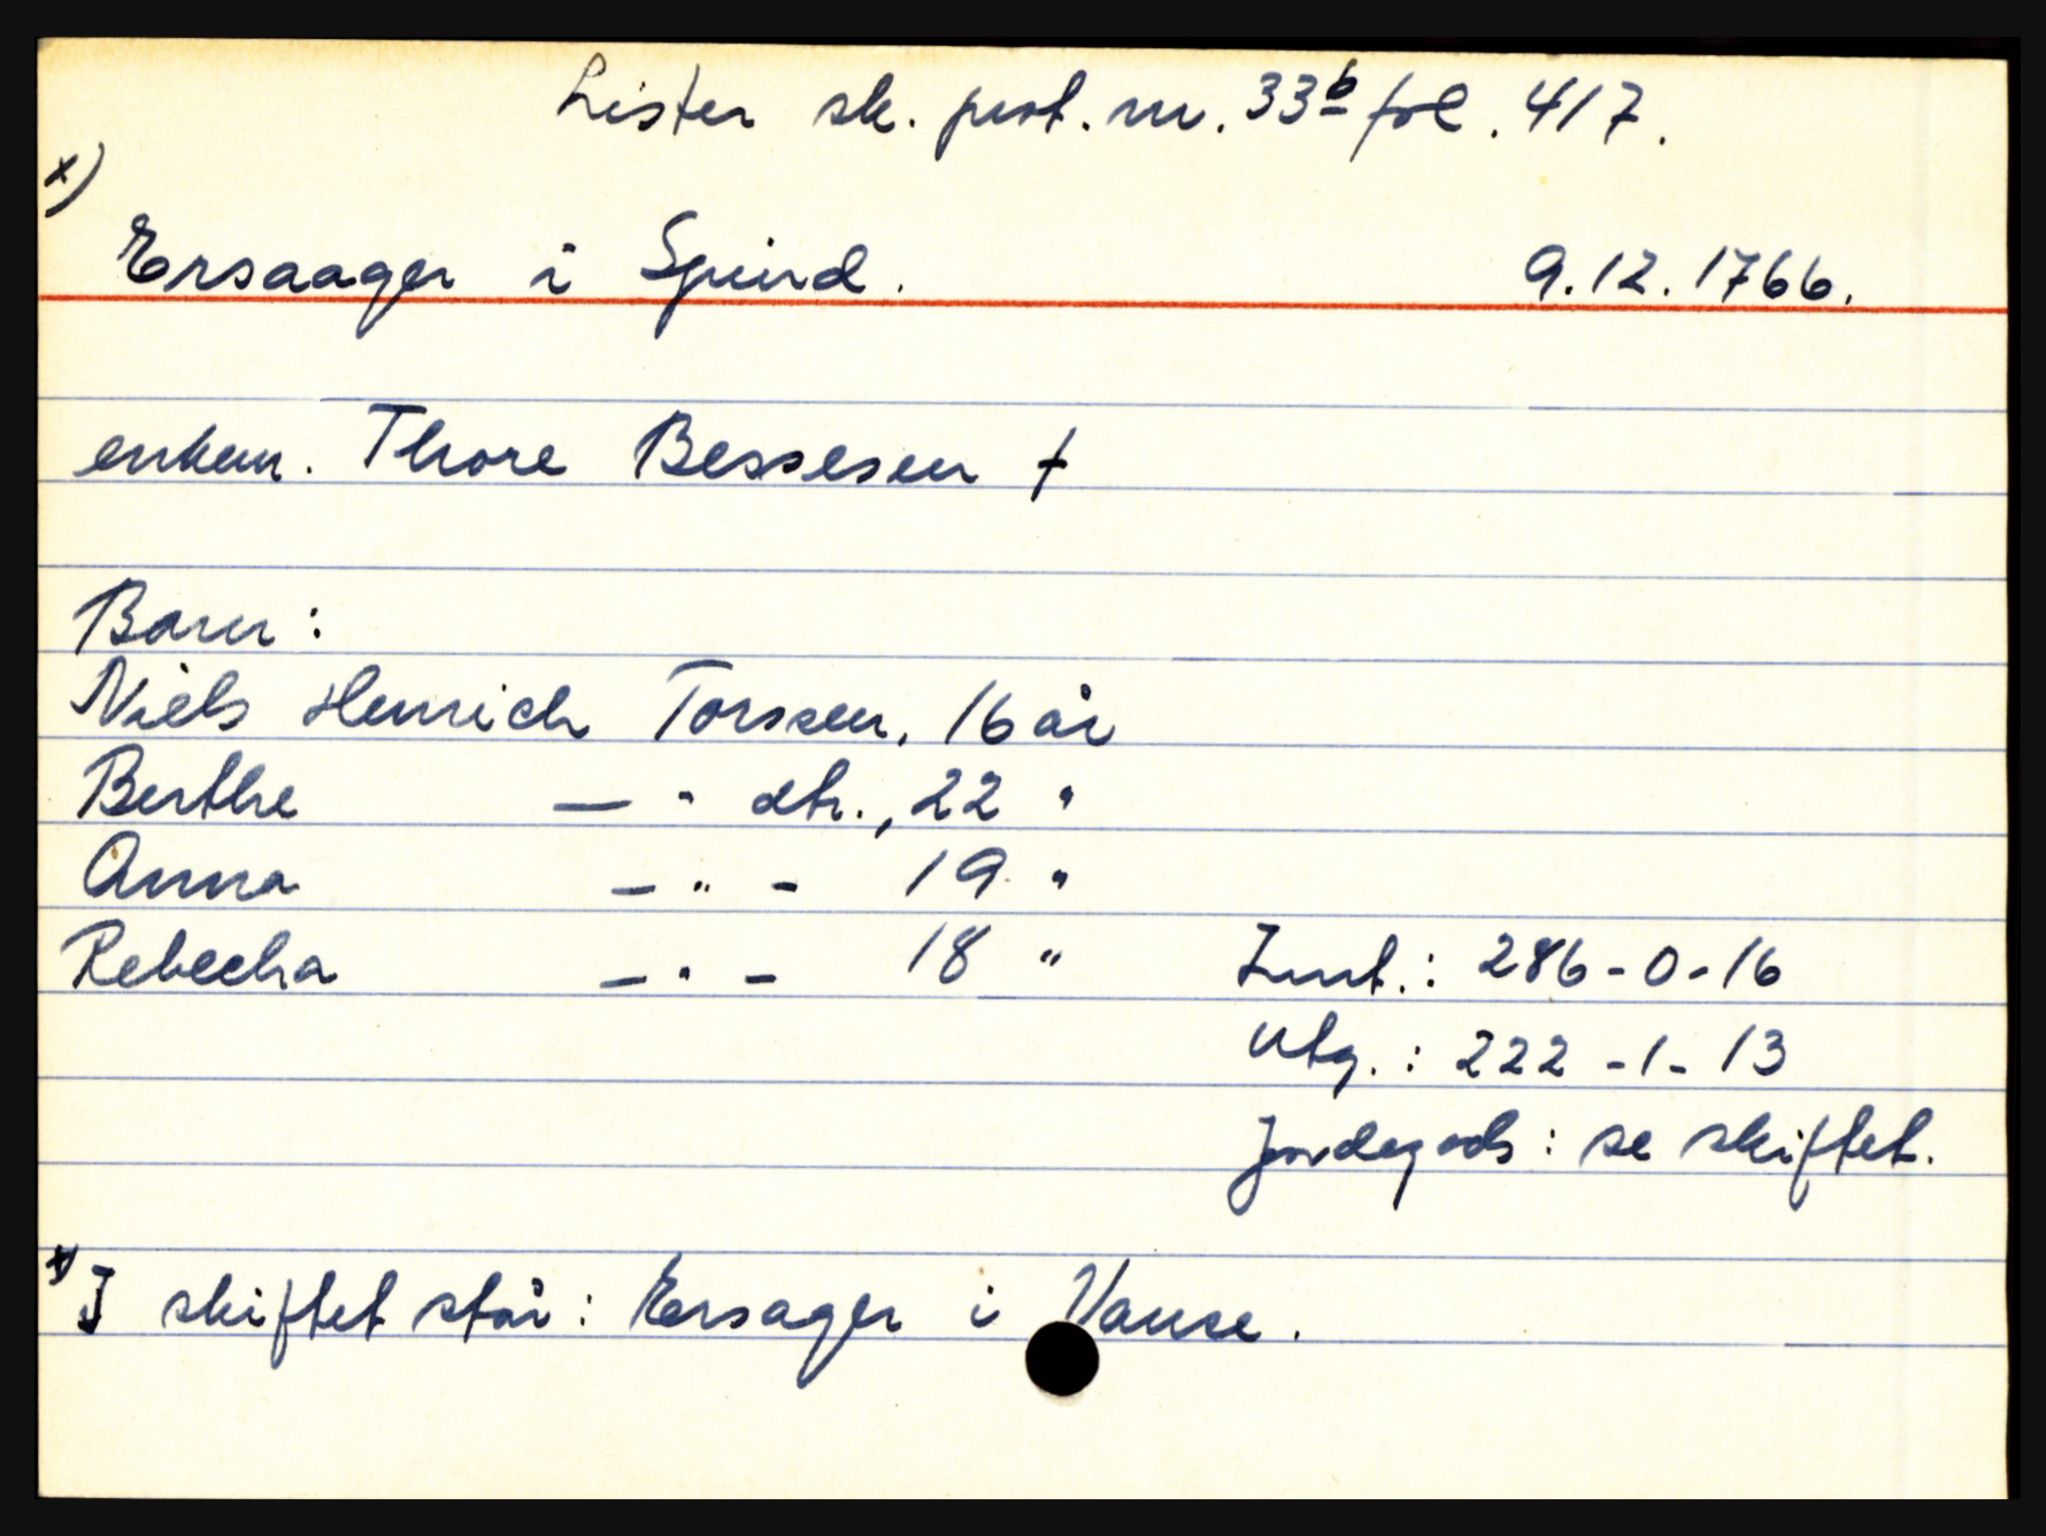 Lister sk. prot. nr. 33b fol. 417.
x)
Ersaager i Spind. 9.12.1766.
enkem. Thore Bessesen †
Barn:
Niels Henrich Torssen, 16 år
Berthe — " dtr., 22 "
Anna — " — 19 "
Rebecha — " — 18 " Innt.: 286-0-16
Utg.: 222-1-13
Jordegods: se skiftet.
x) I skiftet står: Ersager i Vanse.